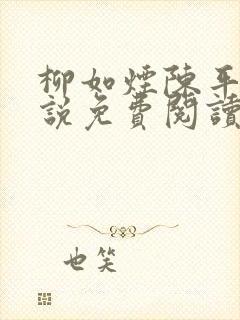 柳如煙陳平
說免費閱讀
也笑